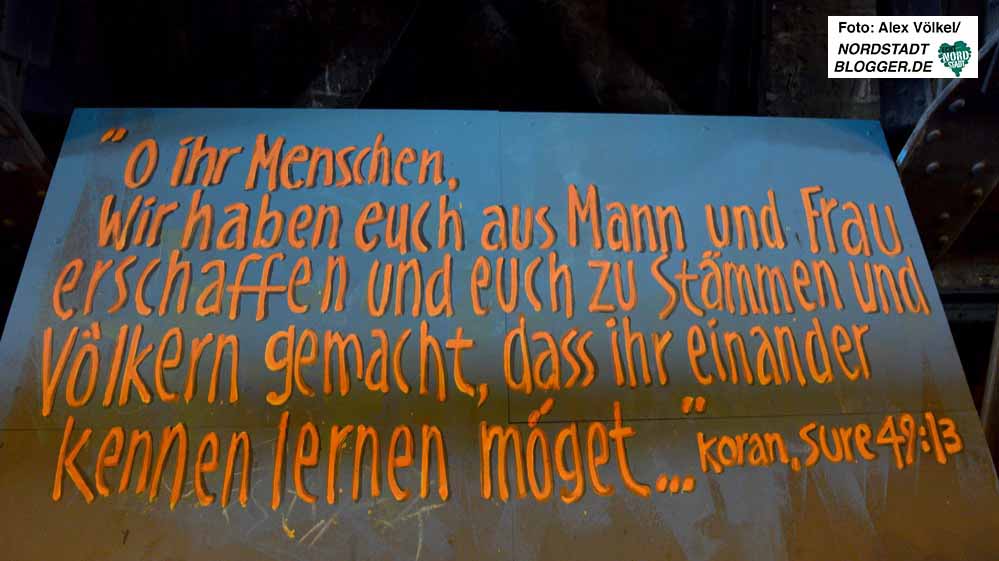 Foto: Alex Völkel/
NORDSTADT
BLOGGER.DE
"O ihr Menschen,
Wir haben euch aus Mann und Frau
erschaffen und euch zu Stämmen und
Völkern gemacht, dass ihr einander
kennen lernen möget..." Koran, Sure 49:13